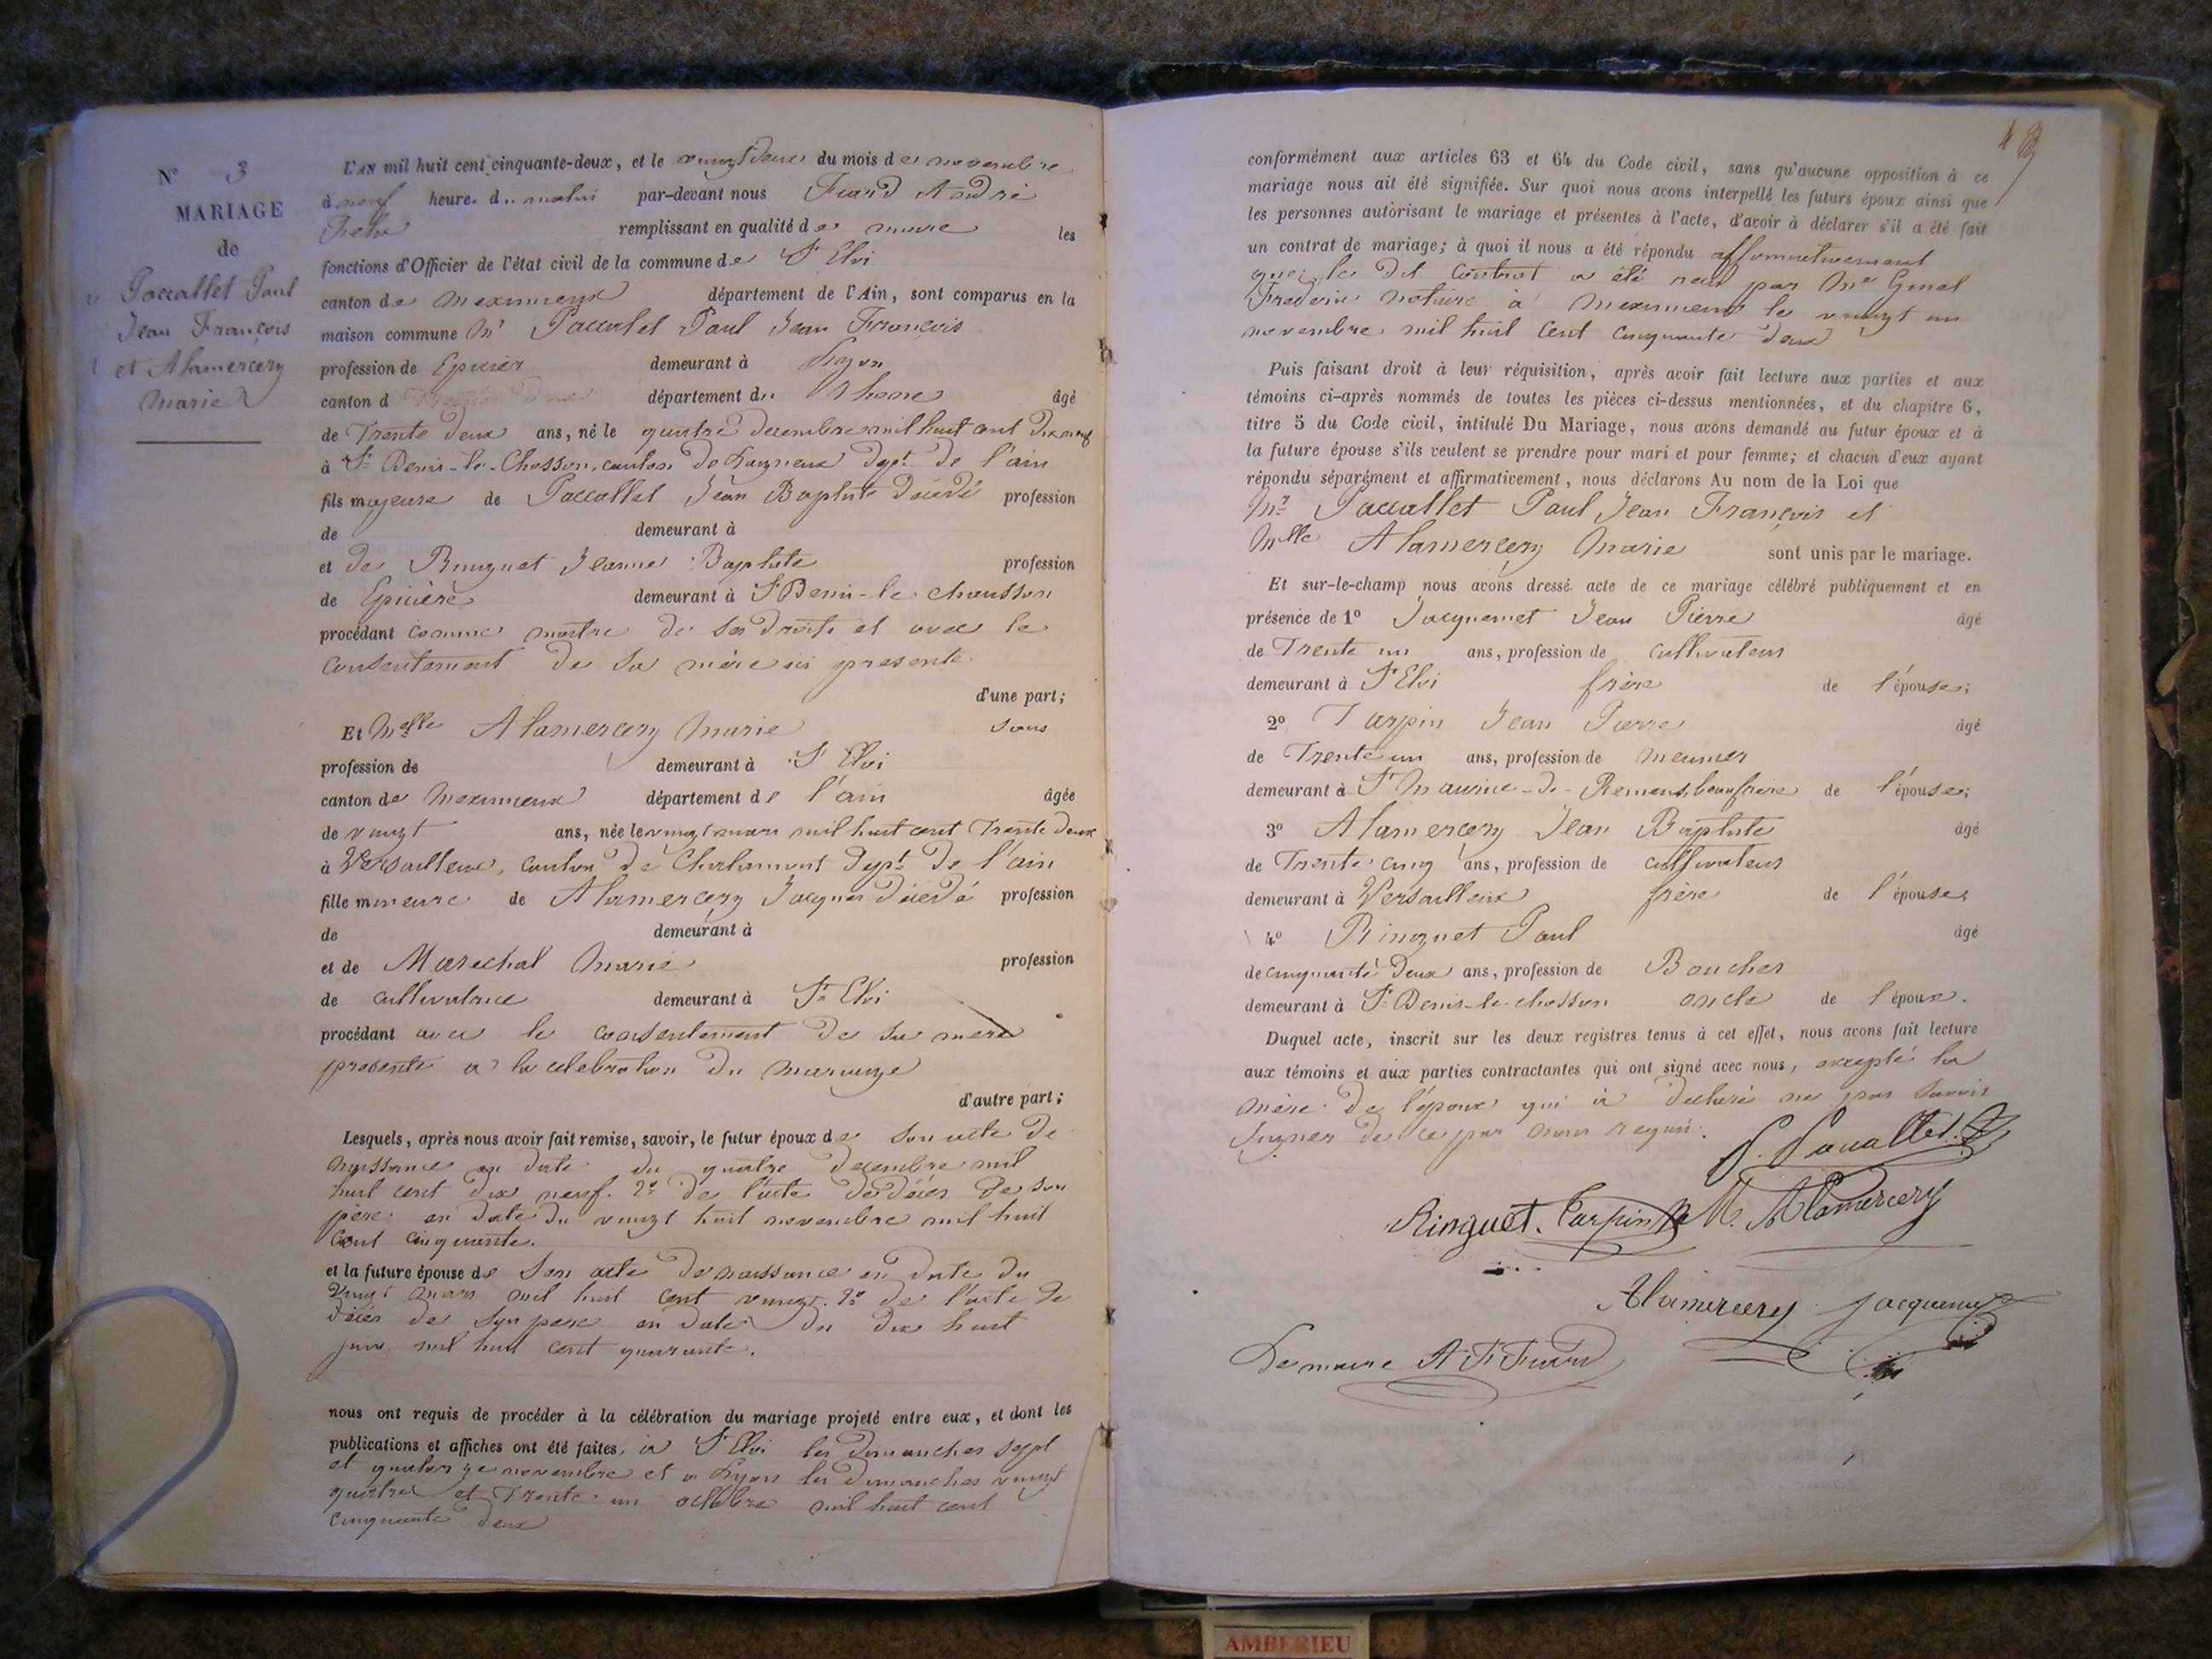 N° 3
MARIAGE
de
Paccallet Paul
Jean François
et Alamercery
Marie
L'AN mil huit cent cinquante-deux, et le vingt deux du mois de novembre
à neuf heures du matin par-devant nous Fiard André
remplissant en qualité de maire les
fonctions d'Officier de l'état civil de la commune de St Eloi
canton de Meximieux département de l'Ain, sont comparus en la
maison commune Mr Paccalet Paul Jean François
profession de Epicier demeurant à Lyon
canton d département du Rhone âgé
de Trente deux ans, né le quatre decembre mil huit cent dix neuf
à St Denis-le-Chosson, canton de Lagnieux dept de l'ain
fils majeure de Paccallet Jean Baptiste décédé profession
de demeurant à
et de Ringuet Jeanne Baptiste profession
de Epicière demeurant à St Denis-le-chausson
procédant comme maitre de ses droits et avec le
consentement de sa mère ici presente.
d'une part;
Et Melle Alamercery Marie sans
profession de demeurant à St Eloi
canton de Meximieux département de l'ain âgée
de vingt ans, née le vingt mars mil huit cent Trente deux
à Versailleux, canton de Chalamont dept de l'ain
fille mineure de Alamercery Jacques décédé profession
de demeurant à
et de Marechal Marie profession
de cultivatrice demeurant à St Eloi
procédant avec le consentement de sa mere
presente a la celebration du mariage
d'autre part;
Lesquels, après nous avoir fait remise, savoir, le futur époux de son acte de
naissance en date du quatre decembre mil
huit cent dix neuf. 2° de l'acte de décès de son
père en date du vingt huit novembre mil huit
cent cinquante.
et la future épouse de son acte de naissance en date du
vingt mars mil huit cent vingt. 2° de l'acte de
décès de son pere en date du dix huit
juin mil huit cent quarante.
nous ont requis de procéder à la célébration du mariage projeté entre eux, et dont les
publications et affiches ont été faites, à St Eloi les dimanches sept
et quatorze novembre et a Lyon les dimanches vingt
quatre et Trente un octobre mil huit cent
cinquante deux
conformément aux articles 63 et 64 du Code civil, sans qu'aucune opposition à ce
mariage nous ait été signifiée. Sur quoi nous avons interpellé les futurs époux ainsi que
les personnes autorisant le mariage et présentes à l'acte, d'avoir à déclarer s'il a été fait
un contrat de mariage; à quoi il nous a été répondu affirmativement
que le dit contrat a été reçu par Me
notaire à Meximieux le vingt un
novembre mil huit cent cinquante deux
Puis faisant droit à leur réquisition, après avoir fait lecture aux parties et aux
témoins ci-après nommés de toutes les pièces ci-dessus mentionnées, et du chapitre 6,
titre 5 du Code civil, intitulé Du Mariage, nous avons demandé au futur époux et à
la future épouse s'ils veulent se prendre pour mari et pour femme; et chacun d'eux ayant
répondu séparément et affirmativement, nous déclarons Au nom de la Loi que
Mr Paccallet Paul Jean François et
Melle Alamercery Marie sont unis par le mariage.
Et sur-le-champ nous avons dressé acte de ce mariage célébré publiquement et en
présence de 1° Jacquemet Jean Pierre âgé
de Trente un ans, profession de cultivateur
demeurant à St Eloi frère de l'épouse;
2° Tarpin Jean Pierre âgé
de Trente un ans, profession de meunier
demeurant à St Maurice-de-Remens, beau frère de l'épouse;
3° Alamercery Jean Baptiste âgé
de Trente cinq ans, profession de cultivateur
demeurant à Versailleux frère de l'épouse
4° Ringuet Paul âgé
de cinquante deux ans, profession de Boucher
demeurant à St Denis-le-chosson oncle de l'époux.
Duquel acte, inscrit sur les deux registres tenus à cet effet, nous avons fait lecture
aux témoins et aux parties contractantes qui ont signé avec nous, excepté la
mère de l'époux qui a déclaré ne pas savoir
signer de ce par nous requis.
P. Paccallet
Ringuet. Tarpin M. Alamercery
Alamercery Jacquemet
Le maire A F Fiard
AMBERIEU